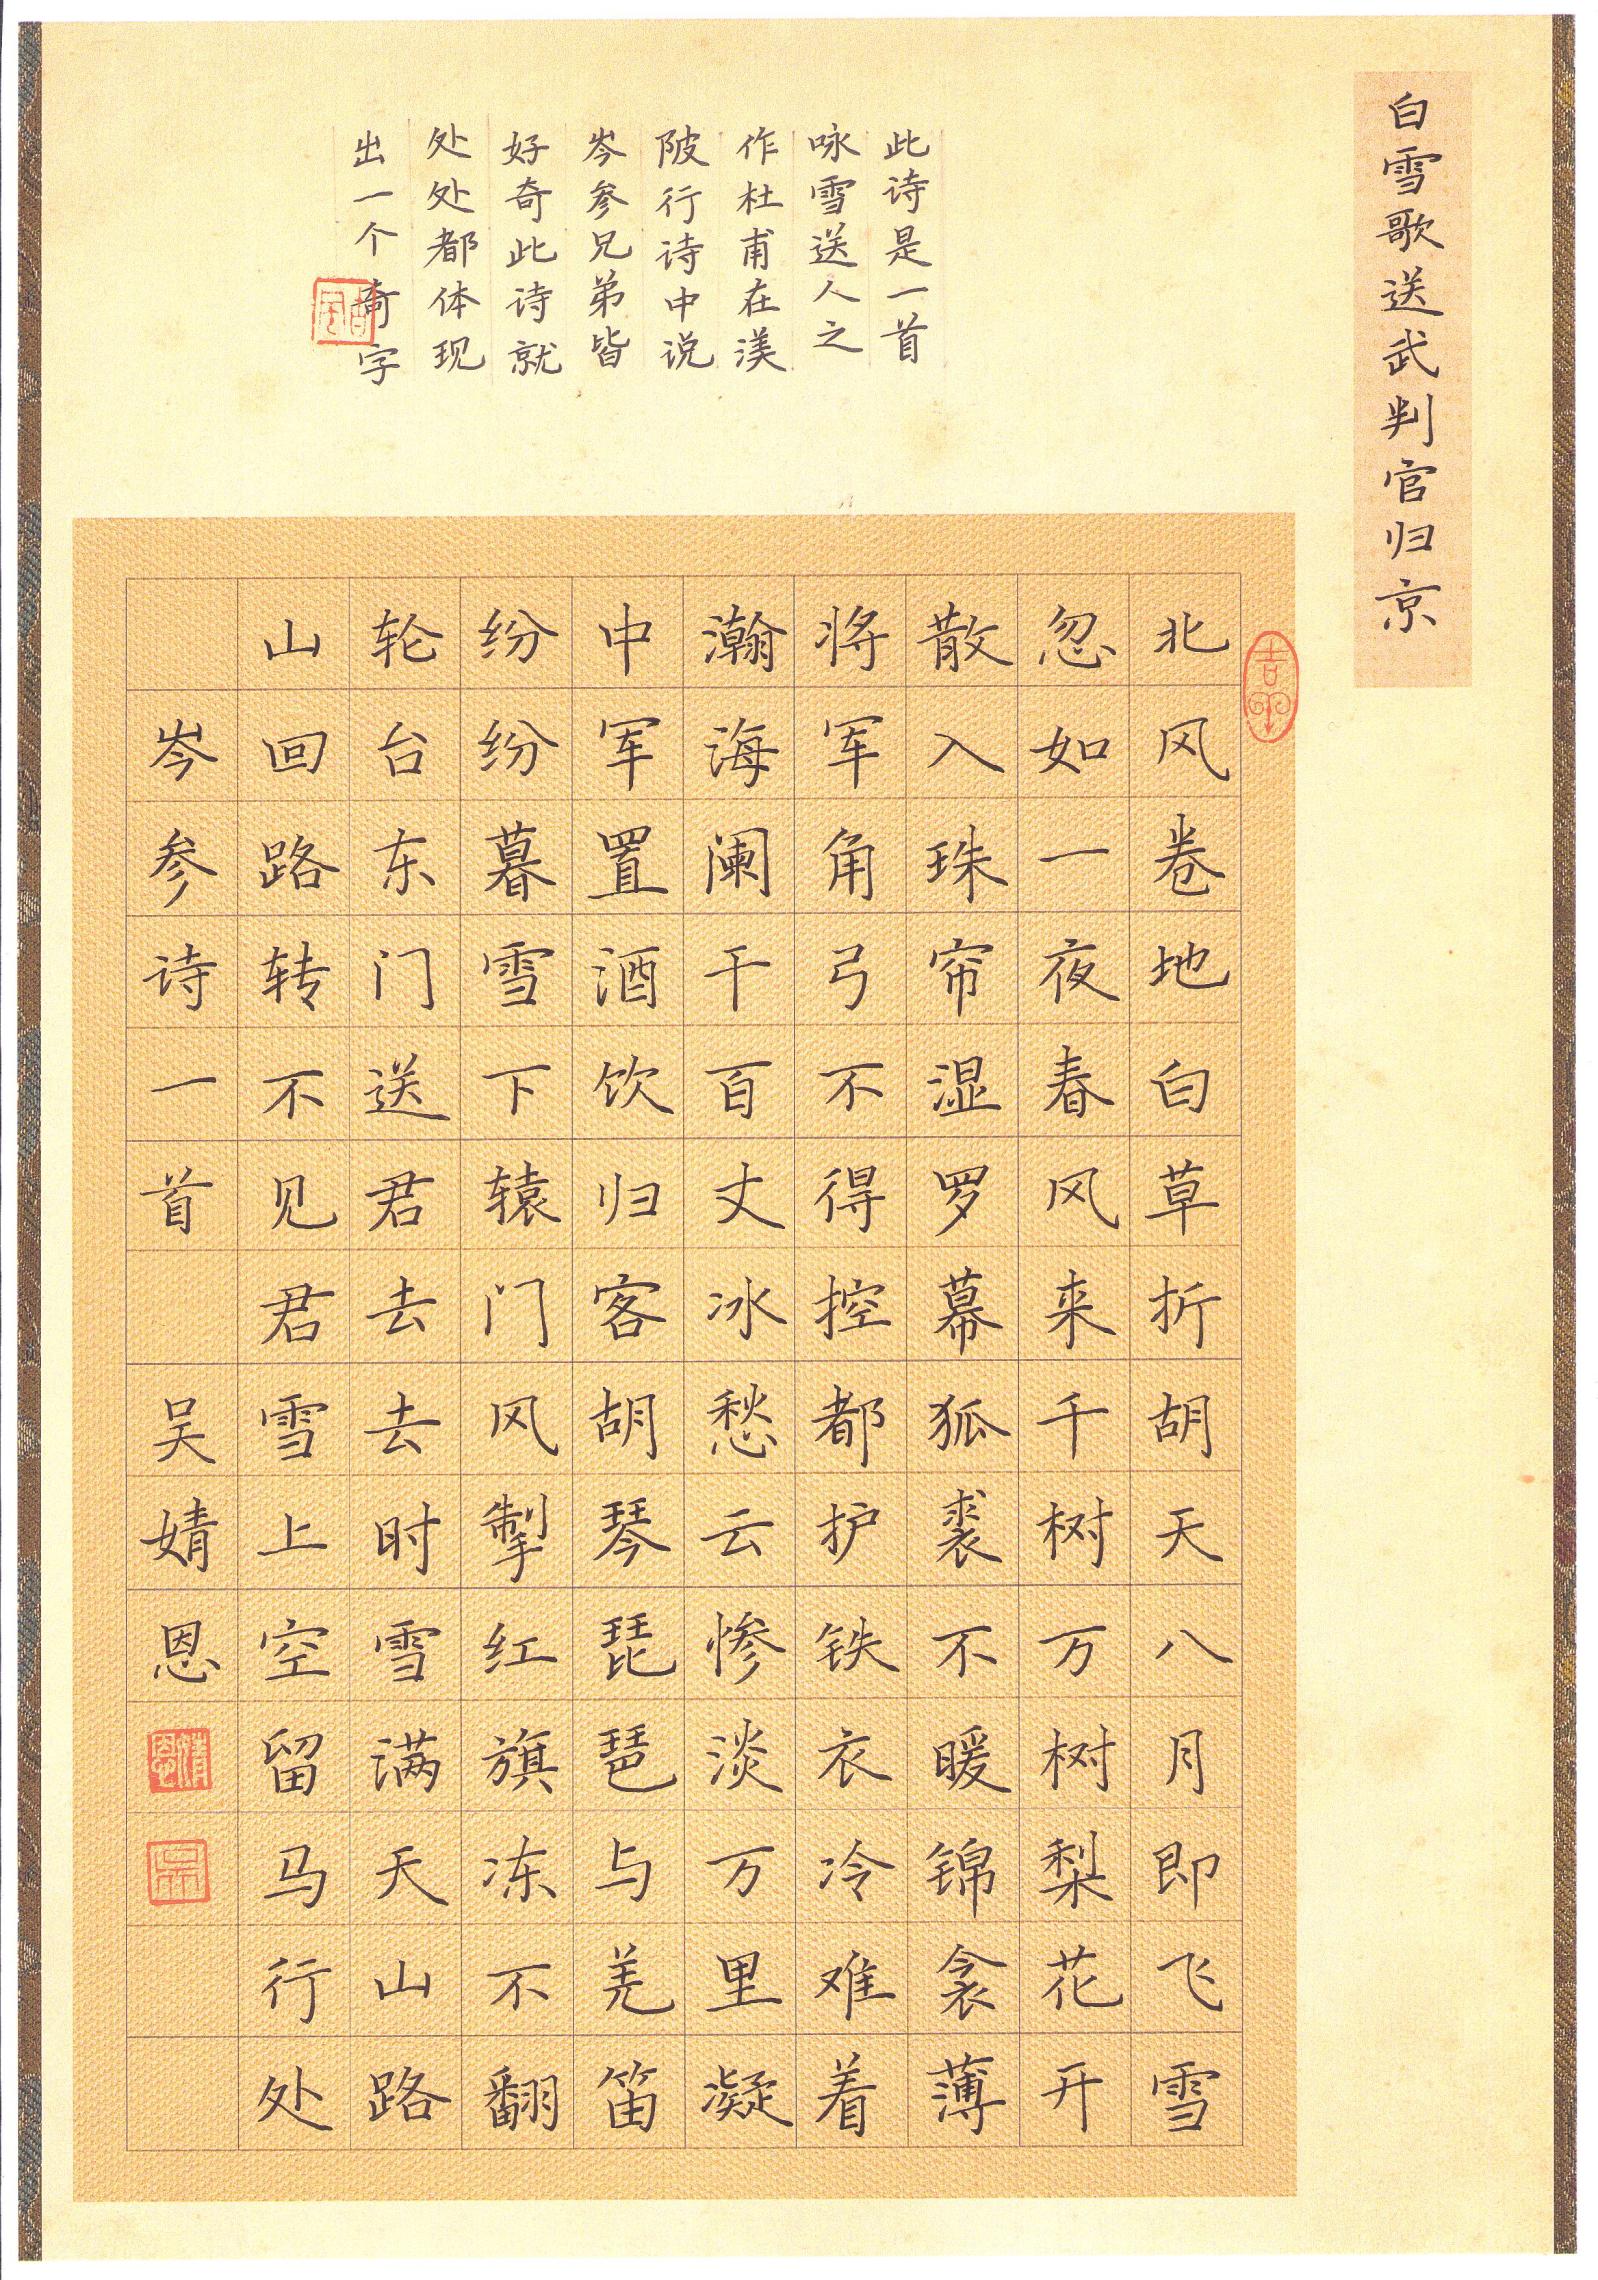 白雪歌送武判官归京
此诗是一首
咏雪送人之
作杜甫在渼
陂行诗中说
岑参兄弟皆
好奇此诗就
处处都体现
出一个奇字
吉
北风卷地白草折胡天八月即飞雪
忽如一夜春风来千树万树梨花开
散入珠帘湿罗幕狐裘不暖锦衾薄
将军角弓不得控都护铁衣冷难着
瀚海阑干百丈冰愁云惨淡万里凝
中军置酒饮归客胡琴琵琶与羌笛
纷纷暮雪下辕门风掣红旗冻不翻
轮台东门送君去去时雪满天山路
山回路转不见君雪上空留马行处
岑参诗一首 吴婧恩
婧恩
吴